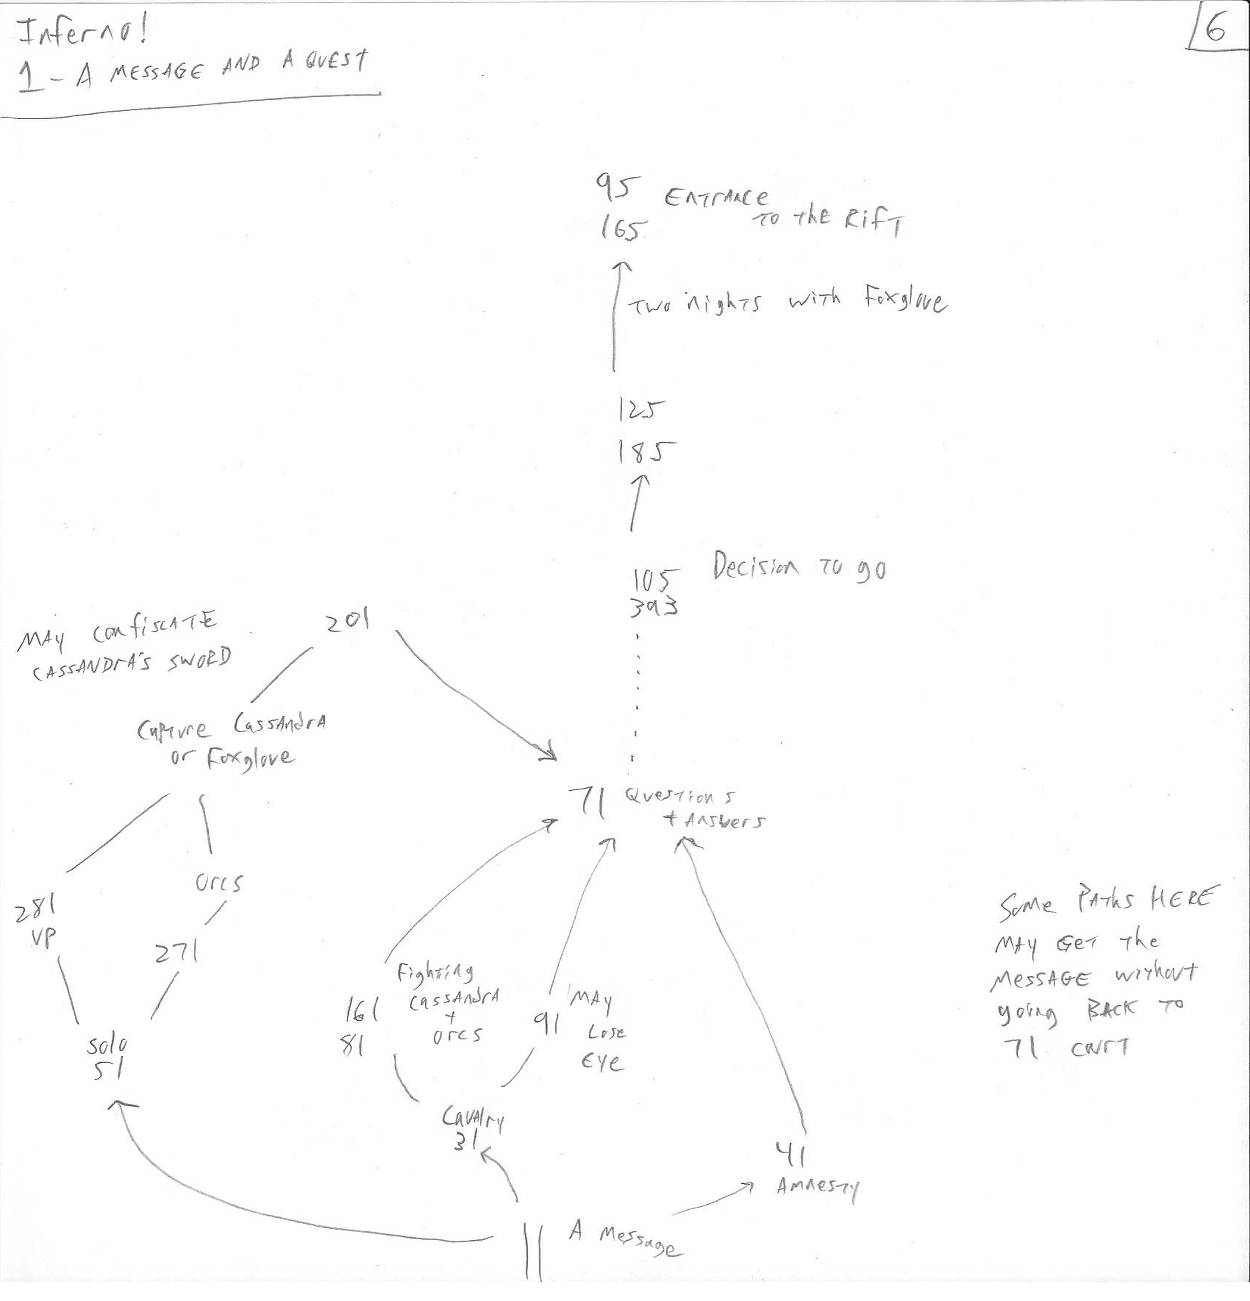 Inferno!
6
1 - A MESSAGE AND A QUEST
95 ENTRANCE
165 TO THE RIFT
Two nights with Foxglove
125
185
105 Decision TO go
393
MAY confiscATE
CASSANDrA'S SWORD
201
Capture CassAndrA
or Foxglove
71 Questions
+ Answers
281
VP
orcs
271
Solo
51
Fighting
161 CASSAndrA
+
81 orcs
91 MAY
Lose
EYE
CAVAlry
31
41
Amnesty
Some PAThs HERE
MAY GET The
MESSAGE without
going BACK TO
71
11 A Message